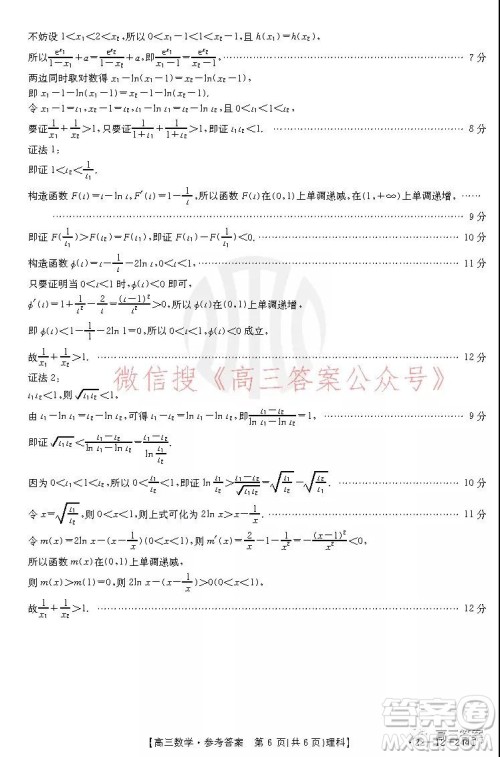 不妨设 1<x₁<2<x₂, 所以 0<x₁-1<1<x₂-1, 且 h(x₁)=h(x₂).
所以 e^{x₁}/(1-x₁)+a=e^{x₂}/(1-x₂)+a, 即 e^{x₁}/(x₁-1)=e^{x₂}/(x₂-1). …… 7 分
两边同时取对数得 x₁-ln(x₁-1)=x₂-ln(x₂-1),
即 x₁-1-ln(x₁-1)=x₂-1-ln(x₂-1).
令 x₁-1=t₁, x₂-1=t₂, 则 t₁-ln t₁=t₂-ln t₂,
要证 1/x₁+1/x₂>1, 只要证 1/(1+t₁)+1/(1+t₂)>1, 即证 t₁t₂<1. …… 8 分
证法 1:
即证 1<t₂<1/t₁.
构造函数 F(t)=t-ln t, F′(t)=1-1/t, 所以函数 F(t)在(0,1)上单调递减, 在(1,+∞)上单调递增,
…… 9 分
即证 F(1/t₁)>F(t₂)=F(t₁), 即证 F(t₁)-F(1/t₁)<0. …… 10 分
构造函数 φ(t)=t-1/t-2ln t, 0<t<1. …… 11 分
只要证明当 0<t<1 时, φ(t)<0 即可.
φ′(t)=1+1/t²-2/t=(t-1)²/t²>0, 所以 φ(t)在(0,1)上单调递增,
即 φ(t)<1-1/1-2ln 1=0, 所以 φ(t)<0 成立,
故 1/x₁+1/x₂>1. …… 12 分
微信搜《高三答案公众号》
证法 2:
即证 0<t₁t₂<1, 则 √(t₁t₂)<1,
由 t₁-ln t₁=t₂-ln t₂, 可得 t₁-t₂=ln t₁-ln t₂, 即 (t₁-t₂)/(ln t₁-ln t₂)=1, …… 9 分
即证 √(t₁t₂)<(t₁-t₂)/(ln t₁-ln t₂)=(t₁-t₂)/ln(t₁/t₂). …… 10 分
因为 0<t₁<1<t₂, 所以 0<t₁/t₂<1, 即证 ln(t₁/t₂)>(t₁-t₂)/√(t₁t₂)=√(t₁/t₂)-√(t₂/t₁).
令 x=√(t₁/t₂), 则 0<x<1, 则上式可化为 2ln x>x-1/x. …… 11 分
令 m(x)=2ln x-(x-1/x), 则 m′(x)=2/x-1-1/x²=-(x-1)²/x²<0,
所以函数 m(x)在(0,1)上单调递减,
则 m(x)>m(1)=0, 即 2ln x-(x-1/x)>0, 即 2ln x>x-1/x.
故 1/x₁+1/x₂>1. …… 12 分
【高三数学·参考答案 第 6 页(共 6 页)理科】
高三答案